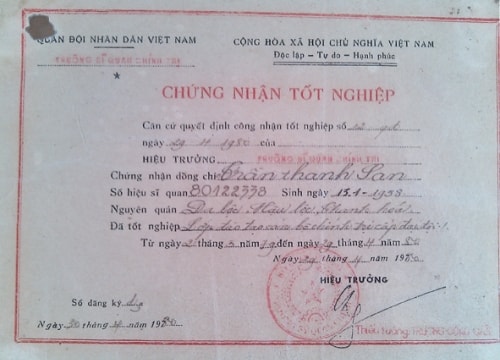 QUÂN ĐỘI NHÂN DÂN VIỆT NAM
TRƯỜNG SĨ QUAN CHÍNH TRỊ
CỘNG HÒA XÃ HỘI CHỦ NGHĨA VIỆT NAM
Độc lập - Tự do - Hạnh phúc
CHỨNG NHẬN TỐT NGHIỆP
Căn cứ quyết định công nhận tốt nghiệp số
ngày 29-4-1980 của
HIỆU TRƯỞNG TRƯỜNG SĨ QUAN CHÍNH TRỊ
Chứng nhận đồng chí Trần Thanh
Số hiệu sĩ quan 80122338 Sinh ngày 15-1-1958
Nguyên quán Đa lộc, Hậu lộc, Thanh hóa
Đã tốt nghiệp Lớp đào tạo cán bộ chính trị cấp đại đội
Từ ngày 2 tháng 3 năm 79 đến ngày 29 tháng 4 năm 80
Ngày 29 tháng 4 năm 1980
HIỆU TRƯỞNG
Số đăng ký
Ngày 30 tháng 4 năm 1980
Thiếu tướng